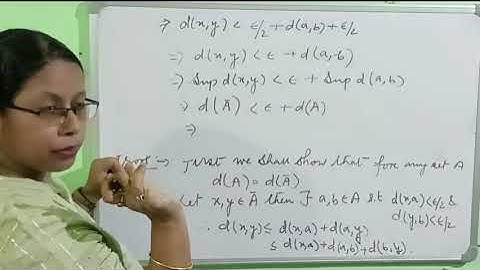 ⇒ d(x,y) < ε/2 + d(a,b) + ε/2
⇒ d(x,y) < ε + d(a,b)
⇒ Sup d(x,y) < ε + Sup d(a,b)
⇒ d(Ā) < ε + d(A)
⇒
Proof → First we shall show that for any set A
d(A) = d(Ā)
Let x,y ∈ Ā then ∃ a,b ∈ A s.t d(x,a) < ε/2 &
d(y,b) < ε/2
∴ d(x,y) ≤ d(x,a) + d(a,y)
≤ d(x,a) + d(a,b) + d(b,y)